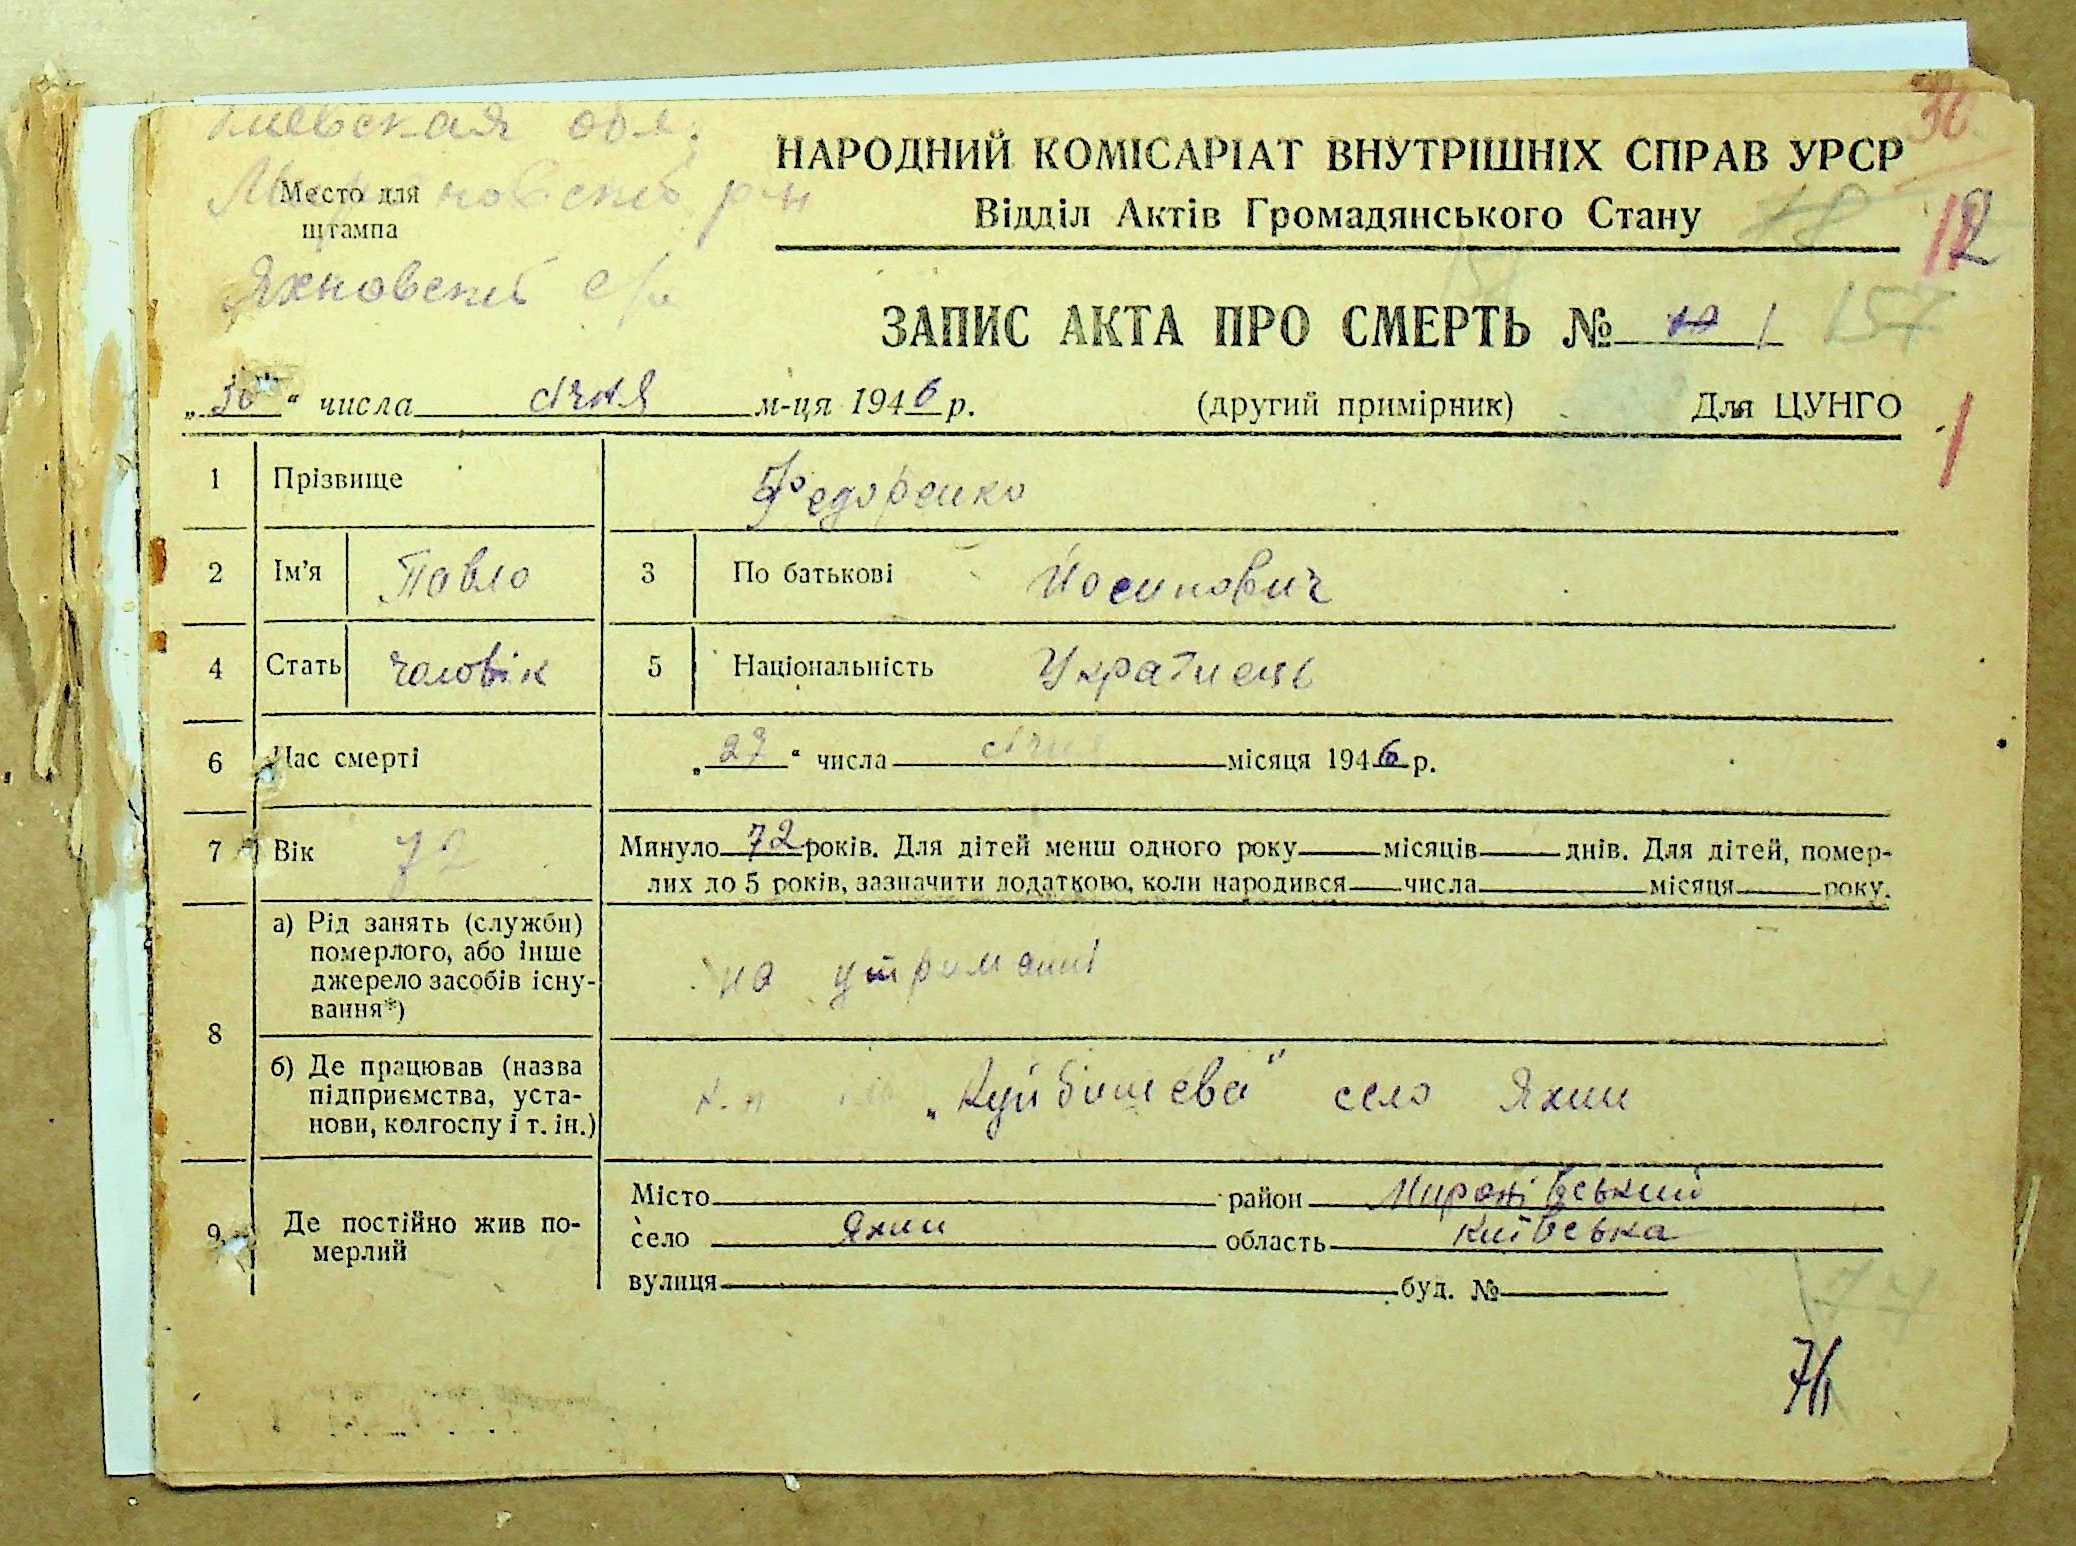 Киевская обл.
Мироновский р-н
Место для
штампа
Яхновский с/с
НАРОДНИЙ КОМІСАРІАТ ВНУТРІШНІХ СПРАВ УРСР
Відділ Актів Громадянського Стану
30
18
12
ЗАПИС АКТА ПРО СМЕРТЬ № 1
157
„30“ числа січня м-ця 1946 р. (другий примірник) Для ЦУНГО
1
1 Прізвище Федоренко
2 Ім'я Павло 3 По батькові Йосипович
4 Стать чоловік 5 Національність Українець
6 Час смерті „27“ числа січня місяця 1946 р.
7 Вік 72 Минуло 72 років. Для дітей менш одного року місяців днів. Для дітей, помер-
лих до 5 років, зазначити додатково, коли народився числа місяця року.
8 а) Рід занять (служби)
померлого, або інше
джерело засобів існу-
вання*)
на утриманні
б) Де працював (назва
підприємства, уста-
нови, колгоспу і т. ін.)
„Куйбишева" село Яхни
9 Де постійно жив по-
мерлий
Місто район Миронівський
село Яхни область Київська
вулиця буд. №
77